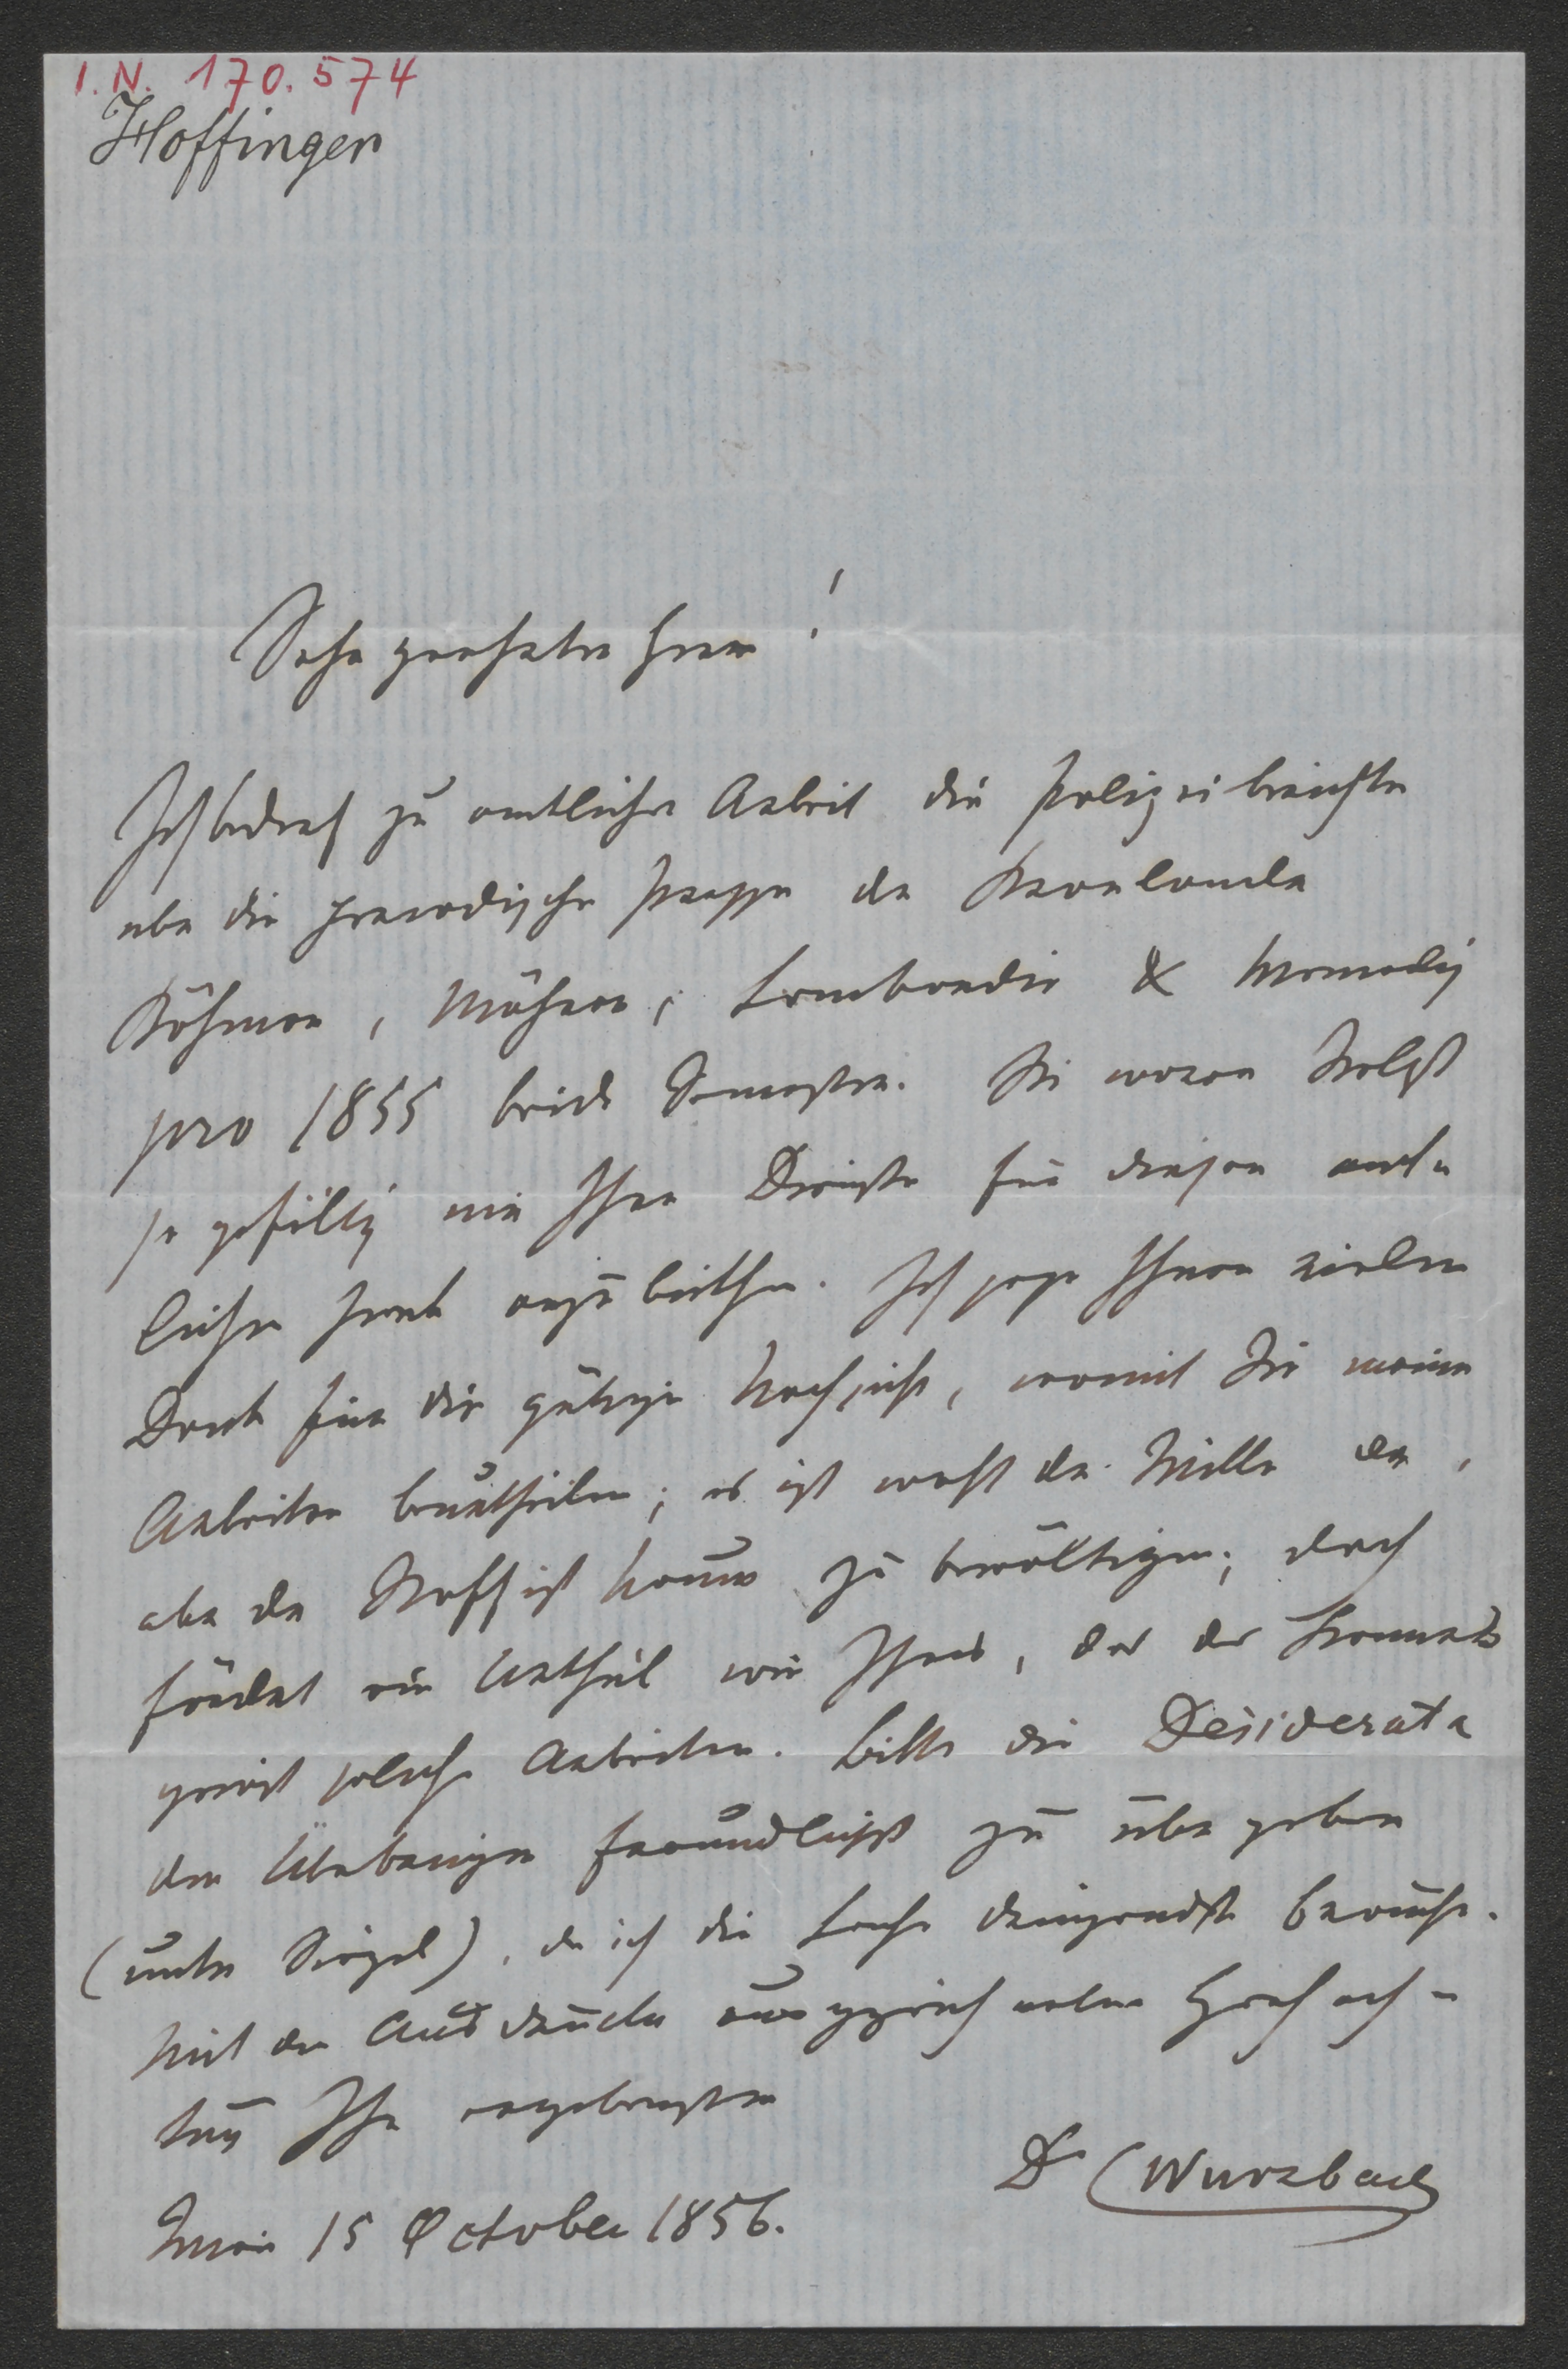 I.N. 170.574
Hoffinger
Sehr geehrter Herr!
Ich bedarf zu amtlicher Arbeit die Polizeiberichte
über die periodische Presse der Kronlande
Böhmen, Mähren, Lombardie & Venedig
pro 1855 beide Semester. Sie waren Selbst
so gefällig mir Ihre Dienste für diesen amt-
lichen Zweck anzubiethen. Ich sage Ihnen vielen
Dank für die gütige Nachsicht, womit Sie meine
Arbeiten beurtheilen; es ist wohl der Wille da,
aber der Stoff ist kaum zu bewältigen; doch
fördert ein Urtheil wie Ihres, das des Kenners
gewiß solche Arbeiten. Bitte die Desiderata
dem Überbringer freundlichst zu übergeben
(unter Siegel), da ich die Sache dringendst brauche.
Mit dem Ausdrucke ausgezeichneter Hochach-
tung Ihr ergebenster
Dr CWurzbach
Wien 15 October 1856.